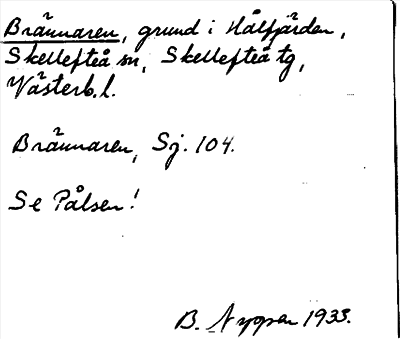 Brännaren, grund i Hålfjärden,
Skellefteå sn, Skellefteå tg,
Västerb.l.
Brännaren, Sj. 104.
Se Pålsen!
B. Nyman 1933.